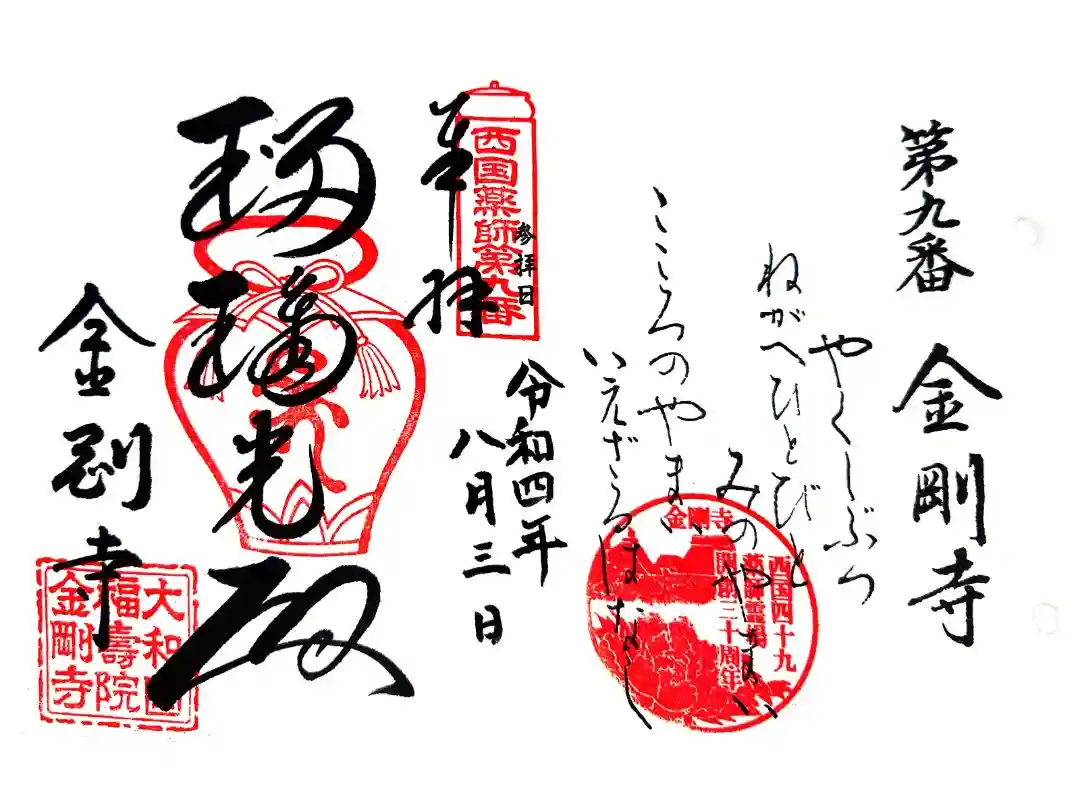 第九番 金剛寺
やくしぶつ
ねがへひとびと
みのやまい
こころのやまい
いえざるはなし
金剛寺
西国四十九
薬師霊場
開創三十周年
西国薬師第九番
参拝日
奉拝
令和四年
八月三日
瑠璃光殿
金剛寺
大和國
福壽院
金剛寺